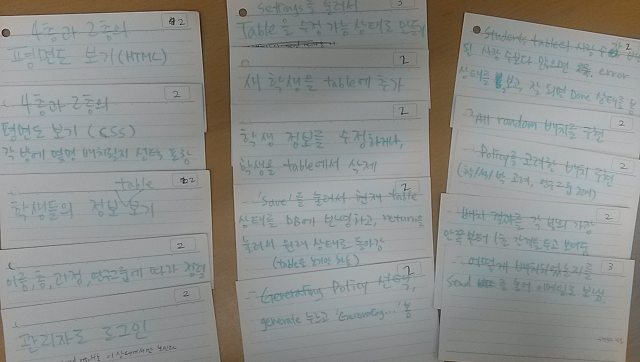 4층과 2층의
2
평면도 보기 (HTML)
4층과 2층의
2
평면도 보기 (CSS)
각 방에 몇명 배치될지 선택 포함
table
2
학생들의 정보 보기
2
이름, 층, 과정, 연구그룹에 따라 정렬
2
관리자로 로그인
settings를 눌러서
3
Table을 수정 가능 상태로 만들기
새 학생을 table에 추가
2
학생 정보를 수정하거나,
학생을 table에서 삭제
2
'Save'를 눌러서 현재 table
상태를 DB에 반영하고, return을
눌러서 원래 상태로 돌아감
2
Generating Policy 선택,
generate 누르고 'Generating...' 봄
2
Students table의 사람 수와
된 사람 숫자가 않으면 error
상태를 보고, 잘 되면 Done 상태를 봄
2
All random 배치를 구현
2
Policy를 고려한 배치 구현
(학/석/박 고려, 연구그룹 고려)
2
배치 결과를 각 방의 가장
안쪽부터 1을 간격을 두고 보여줌
3
어떻게 배치되었는지를
Send 를 눌러 이메일로 보냄